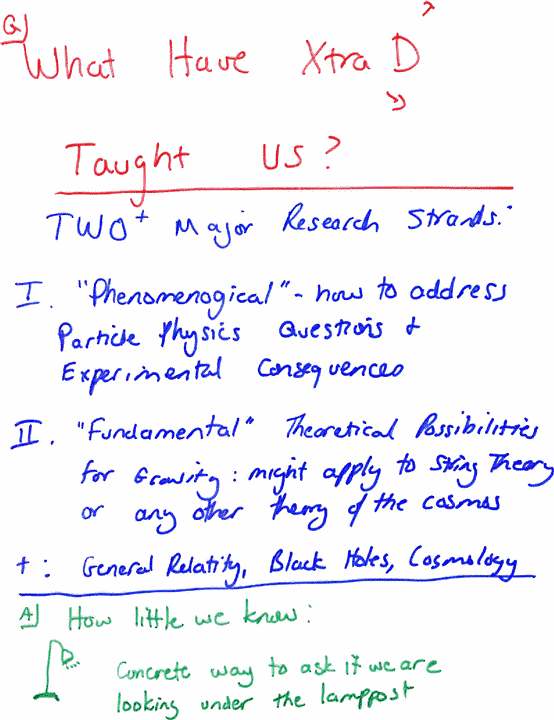 Q)
What Have Xtra D
Taught us?
TWO+ Major Research Strands:
I. "Phenomenogical" - how to address
Particle Physics Questions +
Experimental Consequences
II. "Fundamental" Theoretical Possibilities
for Gravity: might apply to String Theory
or any other theory of the cosmos
+: General Relatity, Black Holes, Cosmology
A) How little we know:
Concrete way to ask if we are
looking under the lamppost